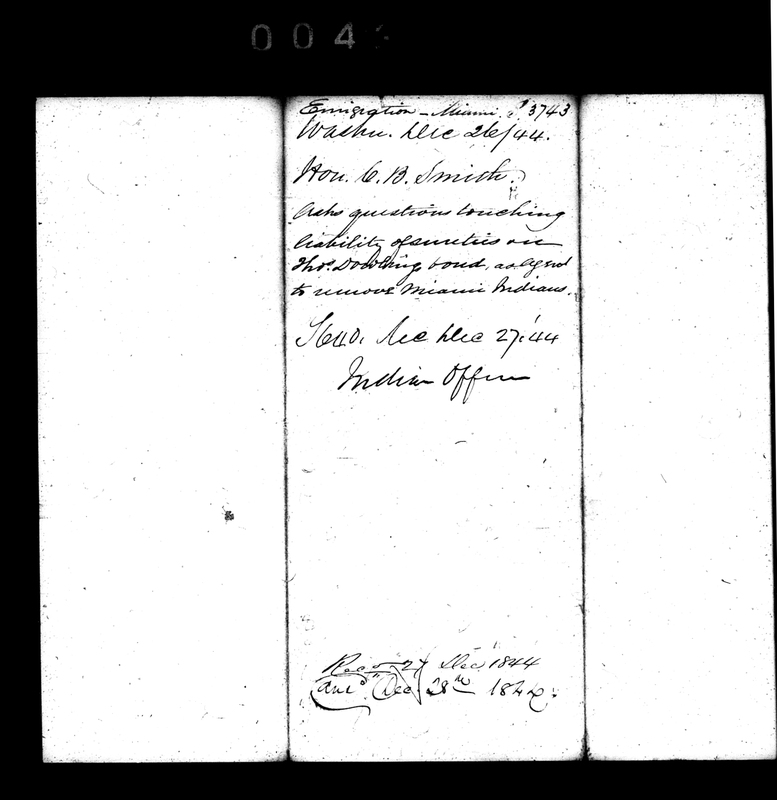 0043
Emigration - Miami. S 3743
Washn. Dec 26/44.
Hon. C. B. Smith.
Asks questions touching
liability of sureties on
Thos. Dowlings bond, as Agent
to remove Miami Indians.
S640. Rec Dec 27. '44
Indian Office
Recd 27 Dec 1844
Ansd. Dec. 28th 1844.